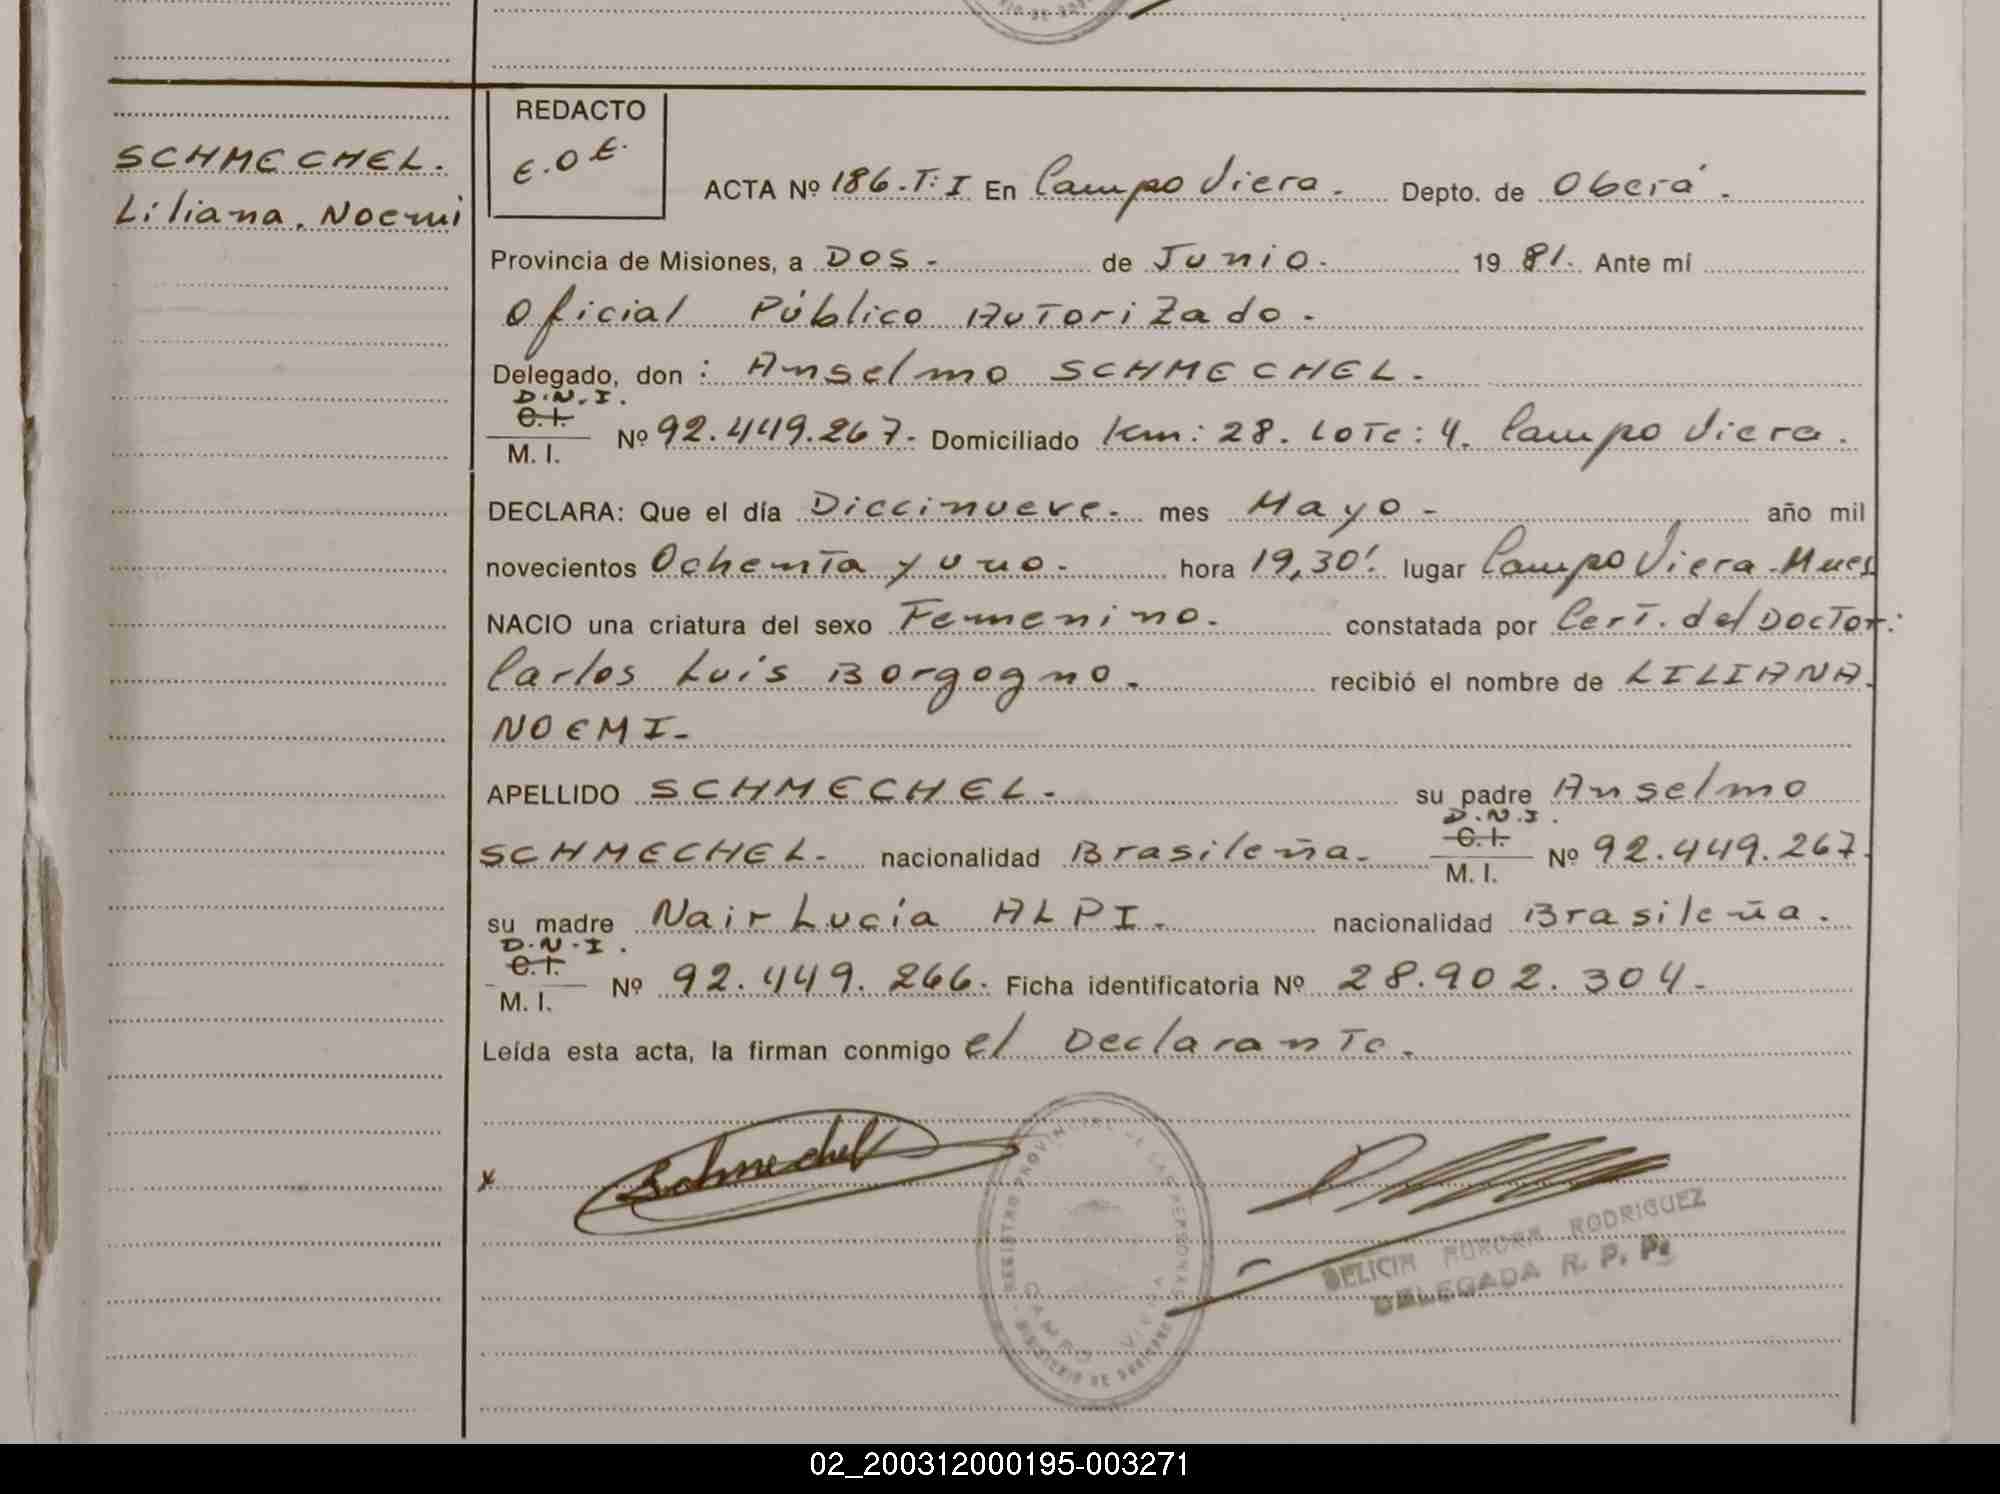 SCHMECHEL.
Liliana, Noemi
REDACTO
E.O.E.
ACTA Nº 186.T:I En Campo Viera. Depto. de Oberá.
Provincia de Misiones, a DOS. de Junio. 19 81. Ante mí
Oficial Público Autorizado.
Delegado, don : Anselmo SCHMECHEL.
D.N.I.
C.I.
M. I. Nº 92.449.267. Domiciliado Km: 28. Lote: 4. Campo Viera.
DECLARA: Que el día Diecinueve. mes Mayo - año mil
novecientos Ochenta y uno. hora 19,30'. lugar Campo Viera. Mnes
NACIO una criatura del sexo Femenino. constatada por Cert. del Doctor:
Carlos Luis Borgogno. recibió el nombre de LILIANA.
NOEMI-
APELLIDO SCHMECHEL. su padre Anselmo
D.N.I.
SCHMECHEL. nacionalidad Brasileña. C.I. Nº 92.449.267.
M. I.
su madre Nair Lucía ALPI. nacionalidad Brasileña.
D.N.I.
C.I.
M. I. Nº 92.449.266. Ficha identificatoria Nº 28.902.304.
Leída esta acta, la firman conmigo el Declarante.
x Schmechel
REGISTRO PROVINCIAL DE LAS PERSONAS
CAMPO VIERA
MINISTERIO DE GOBIERNO
DELICIA AURORA RODRIGUEZ
DELEGADA R. P. P.
02_200312000195-003271